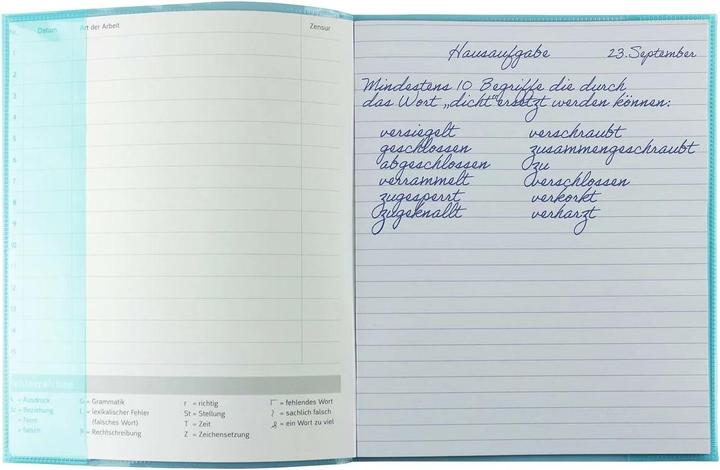 Nr. Datum Art der Arbeit Zensur
1
2
3
4
5
6
7
8
9
10
11
12
13
14
15
Fehlerzeichen
A = Ausdruck G = Grammatik r = richtig = fehlendes Wort
Bz = Beziehung L = lexikalischer Fehler St = Stellung = sachlich falsch
= Form (falsches Wort) T = Zeit = ein Wort zu viel
= falsch R = Rechtschreibung Z = Zeichensetzung
Hausaufgabe 23. September
Mindestens 10 Begriffe die durch
das Wort „dicht" ersetzt werden können:
versiegelt verschraubt
geschlossen zusammengeschraubt
abgeschlossen zu
verrammelt verschlossen
zugesperrt verkorkt
zugeknallt verharzt